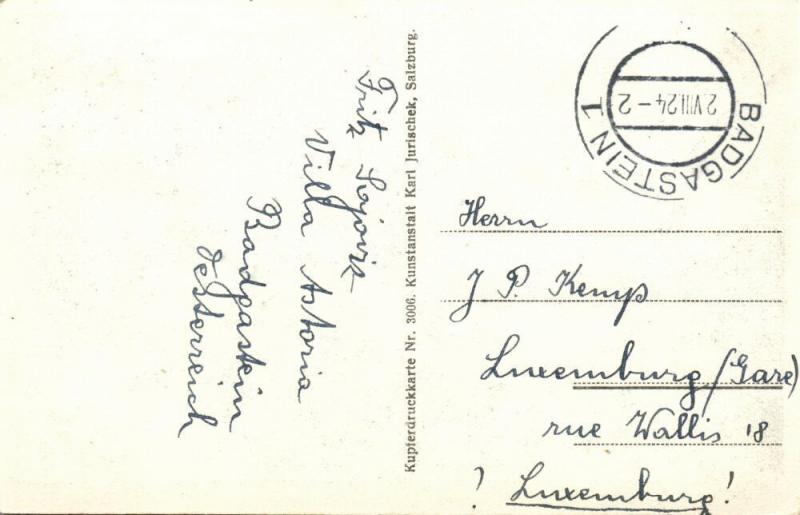 Fritz
Villa Astoria
Badgastein
Oesterreich
Kupferdruckkarte Nr. 3006. Kunstanstalt Karl Jurischek, Salzburg.
BADGASTEIN 1
2.VIII.24-2
Herrn
J P. Kemp
Luxemburg (Gare)
rue Wallis 18
? Luxemburg!